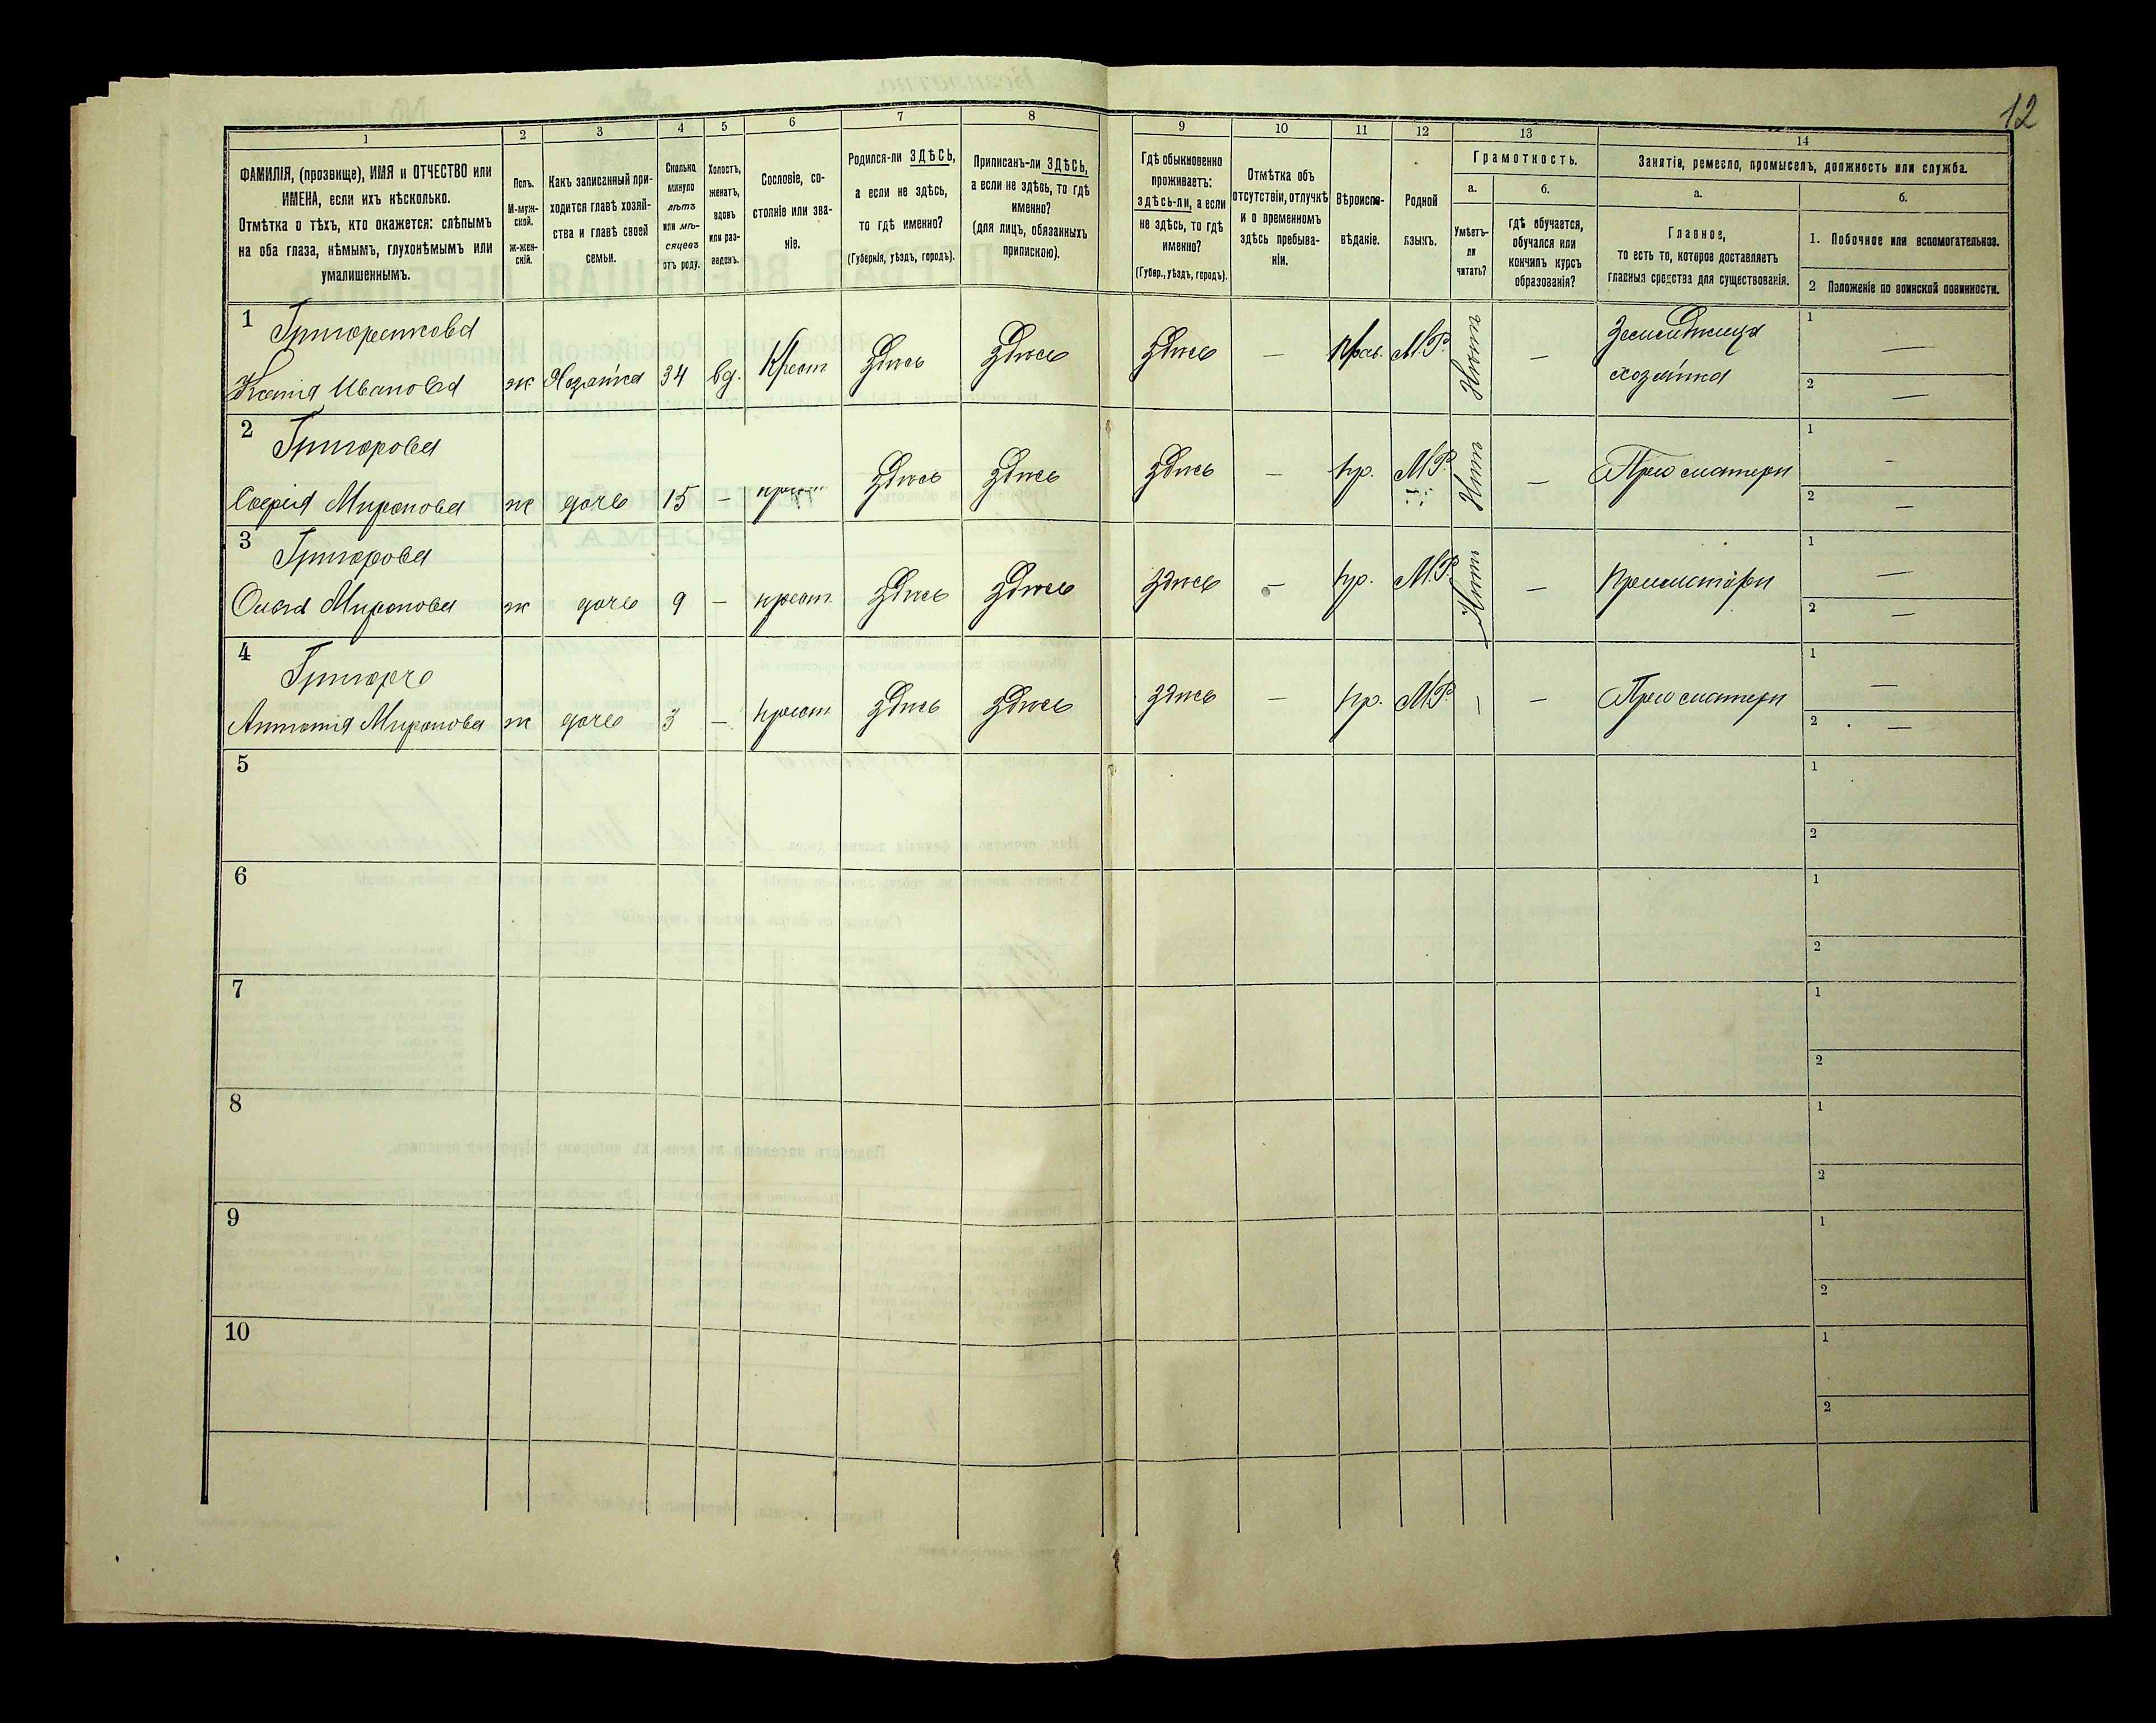 12
1
2
3
4
5
6
7
8
9
10
11
12
13
14
ФАМИЛІЯ, (прозвище), ИМЯ и ОТЧЕСТВО или
ИМЕНА, если ихъ нѣсколько.
Отмѣтка о тѣхъ, кто окажется: слѣпымъ
на оба глаза, нѣмымъ, глухонѣмымъ или
умалишеннымъ.
Полъ.
М-муж-
ской.
Ж-жен-
скій.
Какъ записанный при-
ходится главѣ хозяй-
ства и главѣ своей
семьи.
Сколько
минуло
лѣтъ
или мѣ-
сяцевъ
отъ роду.
Холостъ,
женатъ,
вдовъ
или раз-
веденъ.
Сословіе, со-
стояніе или зва-
ніе.
Родился-ли ЗДѢСЬ,
а если не здѣсь,
то гдѣ именно?
(Губернія, уѣздъ, городъ).
Приписанъ-ли ЗДѢСЬ,
а если не здѣсь, то гдѣ
именно?
(для лицъ, обязанныхъ
припискою).
Гдѣ обыкновенно
проживаетъ:
здѣсь-ли, а если
не здѣсь, то гдѣ
именно?
(Губер., уѣздъ, городъ).
Отмѣтка объ
отсутствіи, отлучкѣ
и о временномъ
здѣсь пребыва-
ніи.
Вѣроиспо-
вѣданіе.
Родной
языкъ.
Грамотность.
а.
б.
Умѣетъ-
ли
читать?
гдѣ обучается,
обучался или
кончилъ курсъ
образованія?
Занятіе, ремесло, промыселъ, должность или служба.
а.
б.
Главное,
то есть то, которое доставляетъ
главныя средства для существованія.
1. Побочное или вспомогательное.
2 Положеніе по воинской повинности.
1 Григоренкова
Ксенія Иванова ж Хозяйка 34 вд. Крест здѣсь здѣсь здѣсь — Прав. М.Р. Нѣтъ — Земледѣлица
хозяйка
1 —
2 —
2 Григорова
Софія Миронова ж дочь 15 — крест здѣсь здѣсь здѣсь — пр. М.Р. Нѣтъ — При матери
1 —
2 —
3 Григорова
Миронова ж дочь 9 — крест. здѣсь здѣсь здѣсь — пр. М.Р. Нѣтъ — При матери
1 —
2 —
4
Миронова ж дочь 3 — крест здѣсь здѣсь здѣсь — пр. М.Р. — — При матери
1 —
2 —
5
1
2
6
1
2
7
1
2
8
1
2
9
1
2
10
1
2